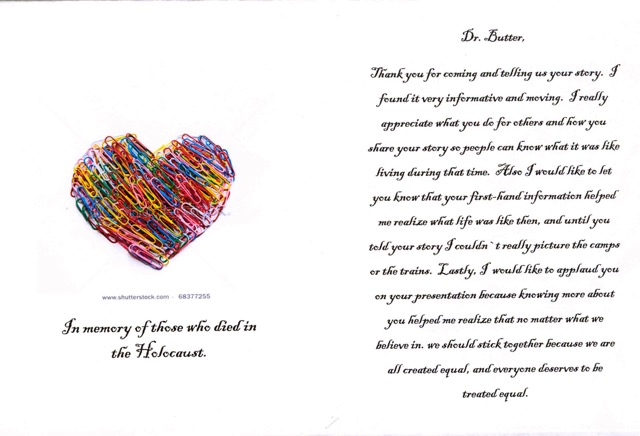 www.shutterstock.com · 68377255
In memory of those who died in
the Holocaust.
Dr. Butter,
Thank you for coming and telling us your story. I
found it very informative and moving. I really
appreciate what you do for others and how you
share your story so people can know what it was like
living during that time. Also I would like to let
you know that your first-hand information helped
me realize what life was like then, and until you
told your story I couldn`t really picture the camps
or the trains. Lastly, I would like to applaud you
on your presentation because knowing more about
you helped me realize that no matter what we
believe in. we should stick together because we are
all created equal, and everyone deserves to be
treated equal.